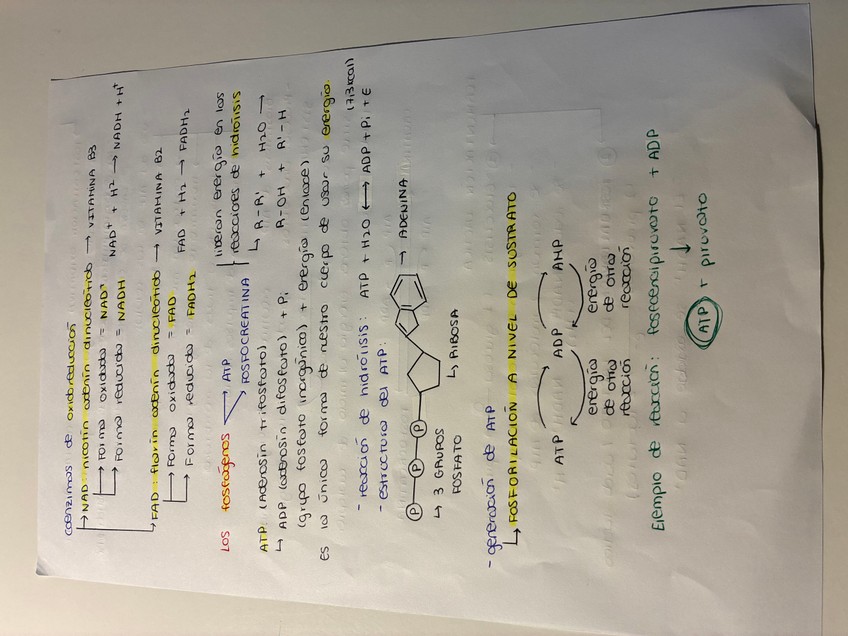 coenzimas de oxidorreducción
↳ NAD: nicotin adenin dinucleótido → VITAMINA B3
↳ Forma oxidada = NAD⁺
↳ Forma reducida = NADH
NAD⁺ + H² → NADH + H⁺
↳ FAD: flavin adenin dinucleótido → VITAMINA B2
↳ Forma oxidada = FAD
↳ Forma reducida = FADH₂
FAD + H₂ → FADH₂
LOS fosfágenos → ATP
→ FOSFOCREATINA
liberan energía en las
reacciones de hidrólisis
↳ R-R' + H₂O →
R-OH + R'-H
ATP (Adenosin trifosfato)
↳ ADP (adenosin difosfato) + Pi
(grupo fosfato inorgánico) + energía (enlace)
es la única forma de nuestro cuerpo de usar su energía.
- reacción de hidrólisis: ATP + H₂O ⟷ ADP + Pi + E
(7,3 kcal)
- estructura del ATP:
P P P
→ ADENINA
↳ 3 GRUPOS
FOSFATO
↳ RIBOSA
- generación de ATP
↳ FOSFORILACIÓN A NIVEL DE SUSTRATO
ATP ADP AMP
energía
de otra
reacción
energía
de otra
reacción
Ejemplo de reacción: fosfoenolpiruvato + ADP
↓
ATP + piruvato